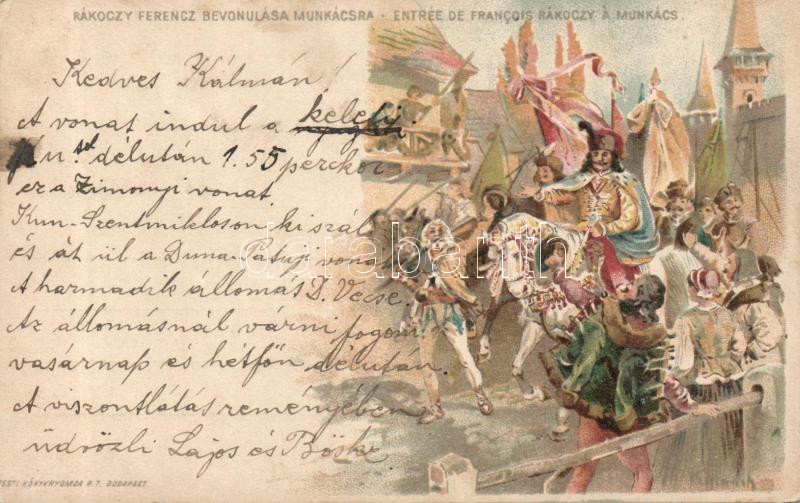 RÁKOCZY FERENCZ BEVONULÁSA MUNKÁCSRA · ENTRÉE DE FRANÇOIS RÁKOCZY À MUNKÁCS.
Kedves Kálmán!
A vonat indul a keleti
délután 1.55 perckor
ez a Zimonyi vonat.
Kun-Szentmikloson ki száll
és át ül a Duna-Pataji vonat
A harmadik állomás D. Vecse.
Az állomásnál várni fogom
vasárnap és hétfőn délután.
A viszontlátás reményében
üdvözli Lajos és Böske
darabanth.com
PESTI KÖNYVNYOMDA R. T. BUDAPEST